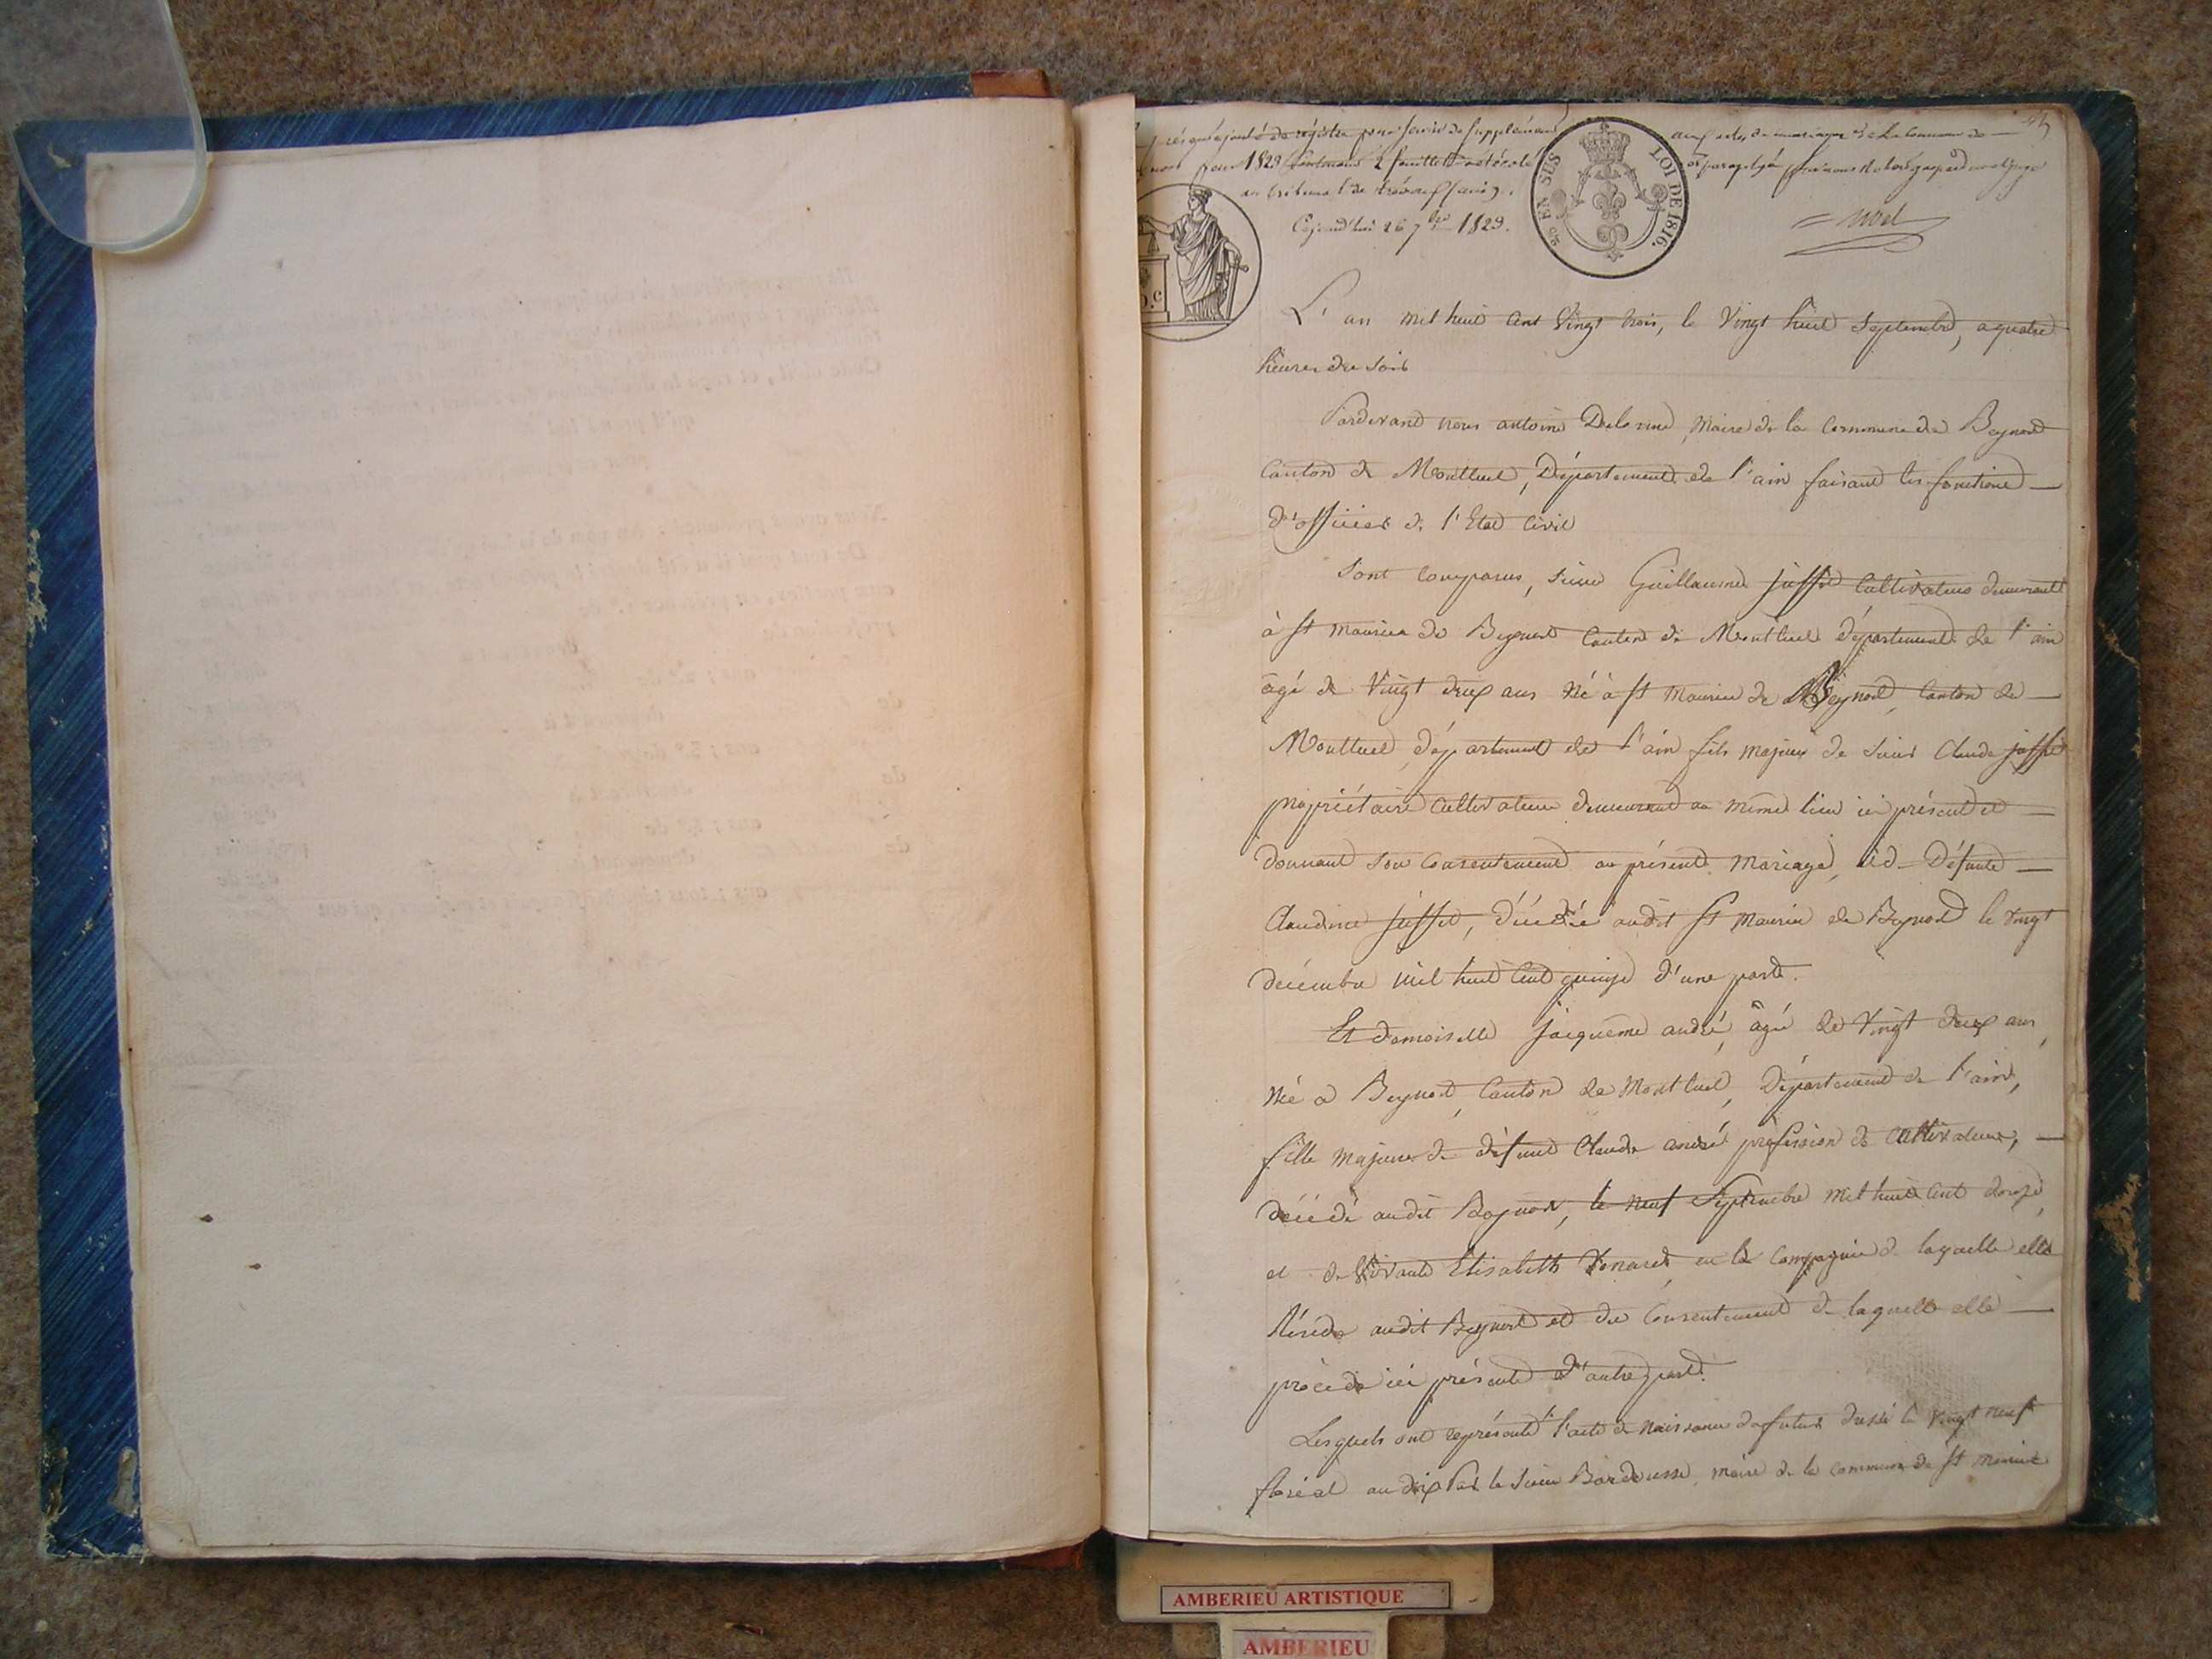 registre pour servir de supplément
aux actes de mariage de la commune de
pour 1823 contenant 2 feuillets a été coté
et paraphé par nous juge
au tribunal de trévoux
Cejourd'hui 26 7bre 1823.
noel
25 C EN SUS
LOI DE 1816.
L'an mil huit cent Vingt trois, le Vingt huit Septembre, a quatre
heures du soir
Pardevant nous antoine Delorme, Maire de la Commune de Beynost
Canton de Montluel, Département de l'ain faisant les fonctions
d'officier de l'Etat Civil
Sont comparus, sieur Guillaume Cultivateur demeurant
à St Maurice de Beynost Canton de Montluel département de l'ain
âgé de Vingt deux ans Né à St Maurice de Beynost, Canton de
Montluel, département de l'ain fils majeur de Sieur Claude
propriétaire Cultivateur demeurant au même lieu ici présent et
donnant son Consentement au présent Mariage, et de Défunte
Claudine décédée audit St Maurice de Beynost le Vingt
décembre mil huit Cent quinze d'une part.
Et demoiselle jaqueme andré, âgée de Vingt deux ans,
Née a Beynost, Canton de Montluel, Département de l'ain,
fille majeure de défunt Claude andré profession de Cultivateur,
décédé audit Beynost, le neuf Septembre mil huit Cent douze,
et de Vivante Elisabeth en la Compagnie de laquelle elle
Réside audit Beynost et du Consentement de laquelle elle
procède ici présente d'autre part.
Lesquels ont représenté l'acte de Naissance du futur dressé le Vingt neuf
floréal an dix Par le Sieur maire de la commune de St Maurice
AMBERIEU ARTISTIQUE
AMBERIEU